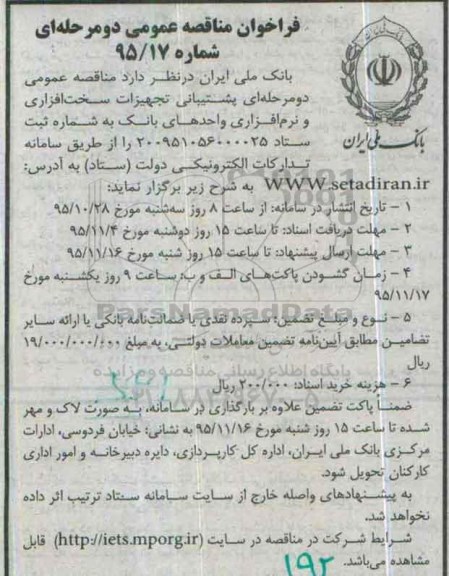 فراخوان مناقصه عمومی دومرحله‌ای
شماره ۹۵/۱۷
بانک ملی ایران
بانک ملی ایران درنظر دارد مناقصه عمومی
دومرحله‌ای پشتیبانی تجهیزات سخت‌افزاری
و نرم‌افزاری واحدهای بانک به شماره ثبت
ستاد ۲۰۰۹۵۱۰۵۶۰۰۰۰۲۵ را از طریق سامانه
تدارکات الکترونیکی دولت (ستاد) به آدرس:
WWW.setadiran.ir به شرح زیر برگزار نماید:
۱ – تاریخ انتشار در سامانه: از ساعت ۸ روز سه‌شنبه مورخ ۹۵/۱۰/۲۸
۲ – مهلت دریافت اسناد: تا ساعت ۱۵ روز دوشنبه مورخ ۹۵/۱۱/۴
۳ – مهلت ارسال پیشنهاد: تا ساعت ۱۵ روز شنبه مورخ ۹۵/۱۱/۱۶
۴ – زمان گشودن پاکت‌های الف و ب: ساعت ۹ روز یکشنبه مورخ
۹۵/۱۱/۱۷
۵ – نوع و مبلغ تضمین: سپرده نقدی یا ضمانت‌نامه بانکی یا ارائه سایر
تضامین مطابق آیین‌نامه تضمین معاملات دولتی، به مبلغ ۱۹/۰۰۰/۰۰۰/۰۰۰
ریال
۶ – هزینه خرید اسناد: ۲۰۰/۰۰۰ ریال
ضمناً پاکت تضمین علاوه بر بارگذاری در سامانه، به صورت لاک و مهر
شده تا ساعت ۱۵ روز شنبه مورخ ۹۵/۱۱/۱۶ به نشانی: خیابان فردوسی، ادارات
مرکزی بانک ملی ایران، اداره کل کارپردازی، دایره دبیرخانه و امور اداری
کارکنان تحویل شود.
به پیشنهادهای واصله خارج از سایت سامانه ستاد ترتیب اثر داده
نخواهد شد.
شرایط شرکت در مناقصه در سایت (http://iets.mporg.ir) قابل
مشاهده می‌باشد.
۱۹۲
ParsNamadData
پایگاه اطلاع رسانی مناقصه و مزایده